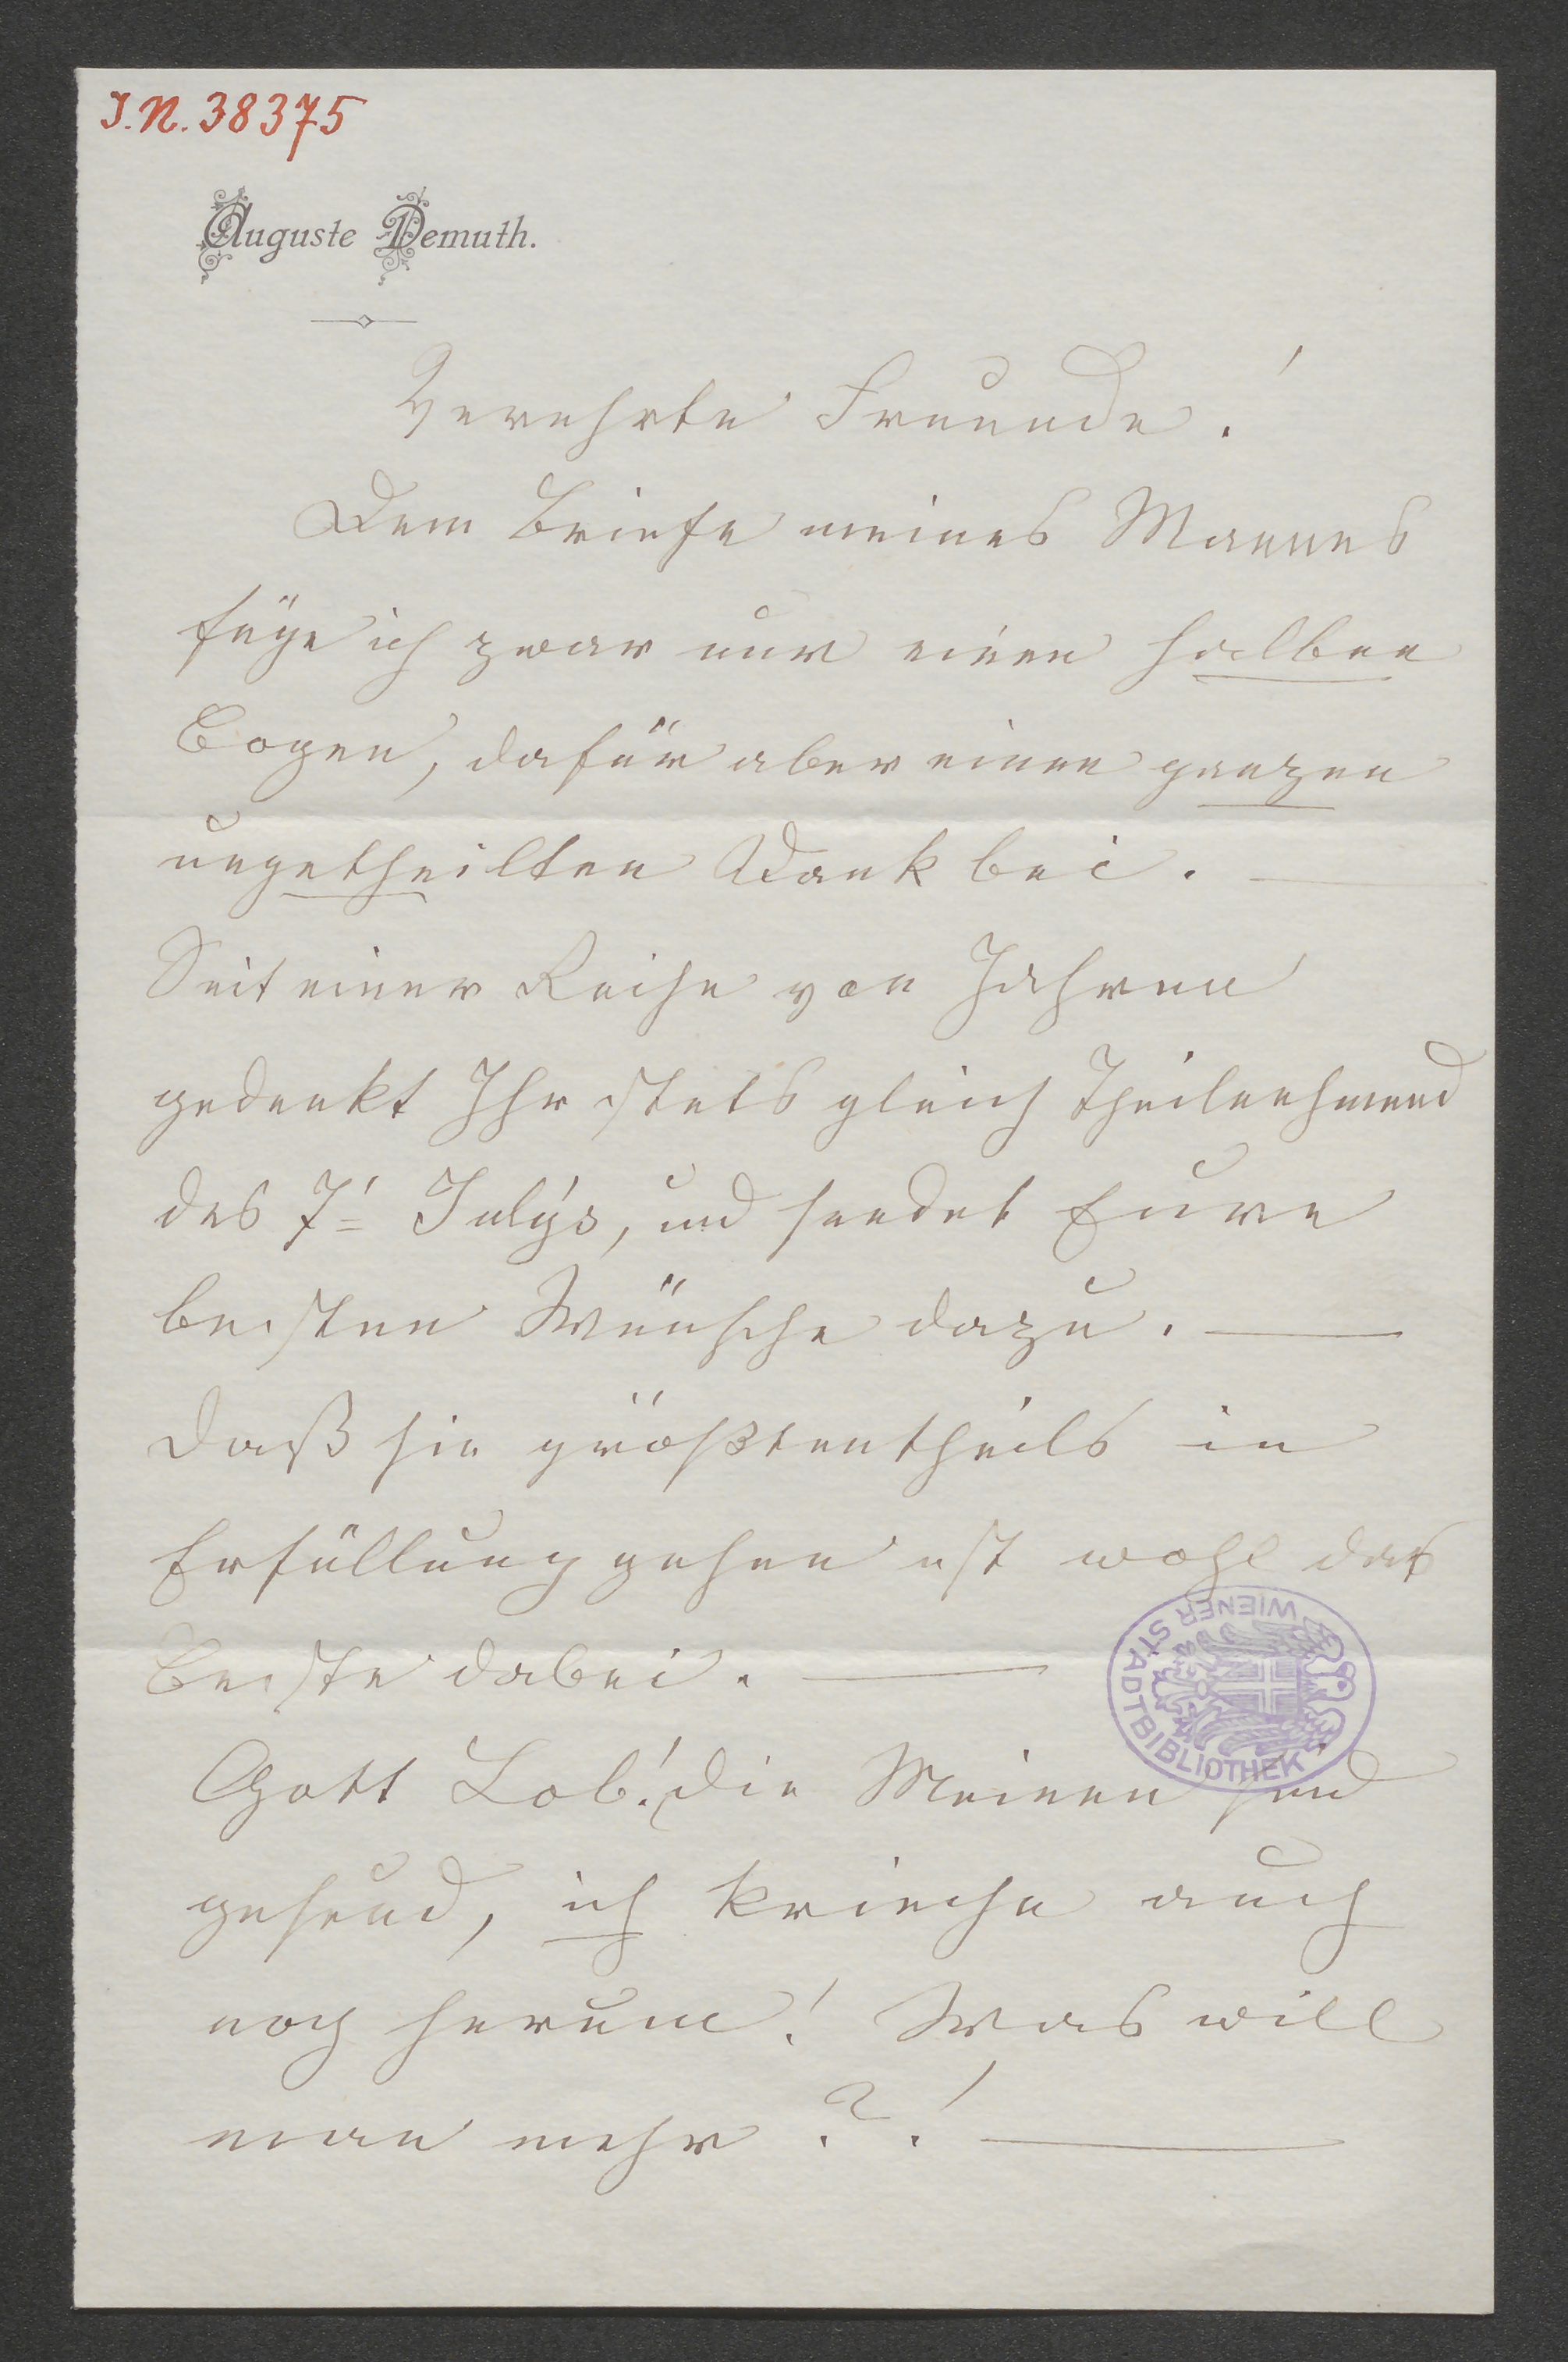 I.N. 38375
Auguste Demuth.
Verehrte Freunde!
Dem Briefe meines Mannes
füge ich zwar nur einen halben
Bogen, dafür aber einen ganzen
ungetheilten Dank bei. —
Seit einer Reihe von Jahren
gedenkt Ihr stets gleich Theilnehmend
des 7' July's, und sendet Eure
besten Wünsche dazu. —
Daß sie größtentheils in
Erfüllung gehen ist wohl das
Beste dabei. —
Gott Lob! Die Meinen sind
gesund, ich krieche auch
noch herum! Was will
man mehr?! —
WIENER STADTBIBLIOTHEK